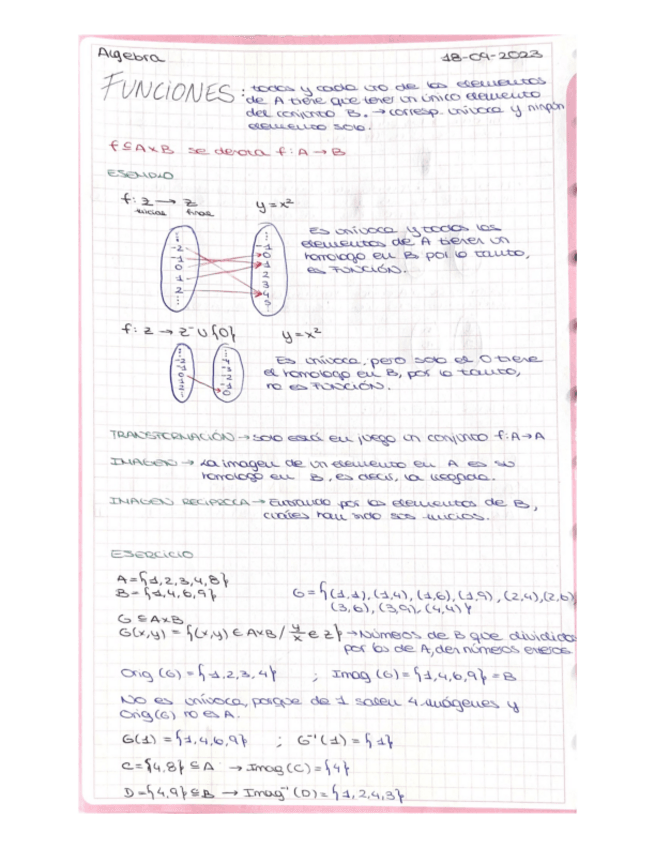 Algebra 18-09-2023
FUNCIONES: todos y cada uno de los elementos
de A tiene que tener un único elemento
del conjunto B. → corresp. unívoca y ningún
elemento solo.
f ⊆ A×B se denota f: A → B
EJEMPLO
f: Z → Z y = x²
inicial final
Es unívoca y todos los
elementos de A tienen un
homologo en B por lo tanto,
es FUNCIÓN.
⋮ -2 -1 0 1 2 ⋮
⋮ -1 0 1 2 3 4 5 ⋮
f: Z → Z⁻ ∪ {0} y = x²
Es unívoca, pero solo el 0 tiene
el homologo en B, por lo tanto,
no es FUNCIÓN.
TRANSFORMACIÓN → solo está en juego un conjunto f: A → A
IMAGEN → La imagen de un elemento en A es su
homologo en B, es decir, la llegada.
IMAGEN RECIPROCA → Entrando por los elementos de B,
cuáles han sido sus inicios.
EJERCICIO
A = {1,2,3,4,8}
B = {1,4,6,9} G = {(1,1), (1,4), (1,6), (1,9), (2,4), (2,6)
(3,6), (3,9), (4,4)}
G ⊆ A×B
G(x,y) = {(x,y) ∈ A×B / y/x ∈ Z} → Números de B que divididos
por los de A, den números enteros
Orig (G) = {1,2,3,4} ; Imag (G) = {1,4,6,9} = B
No es unívoca, porque de 1 salen 4 imágenes y
Orig(G) no es A.
G(1) = {1,4,6,9} ; G⁻¹(1) = {1}
C = {4,8} ⊆ A → Imag (C) = {4}
D = {4,9} ⊆ B → Imag⁻¹ (D) = {1,2,4,3}